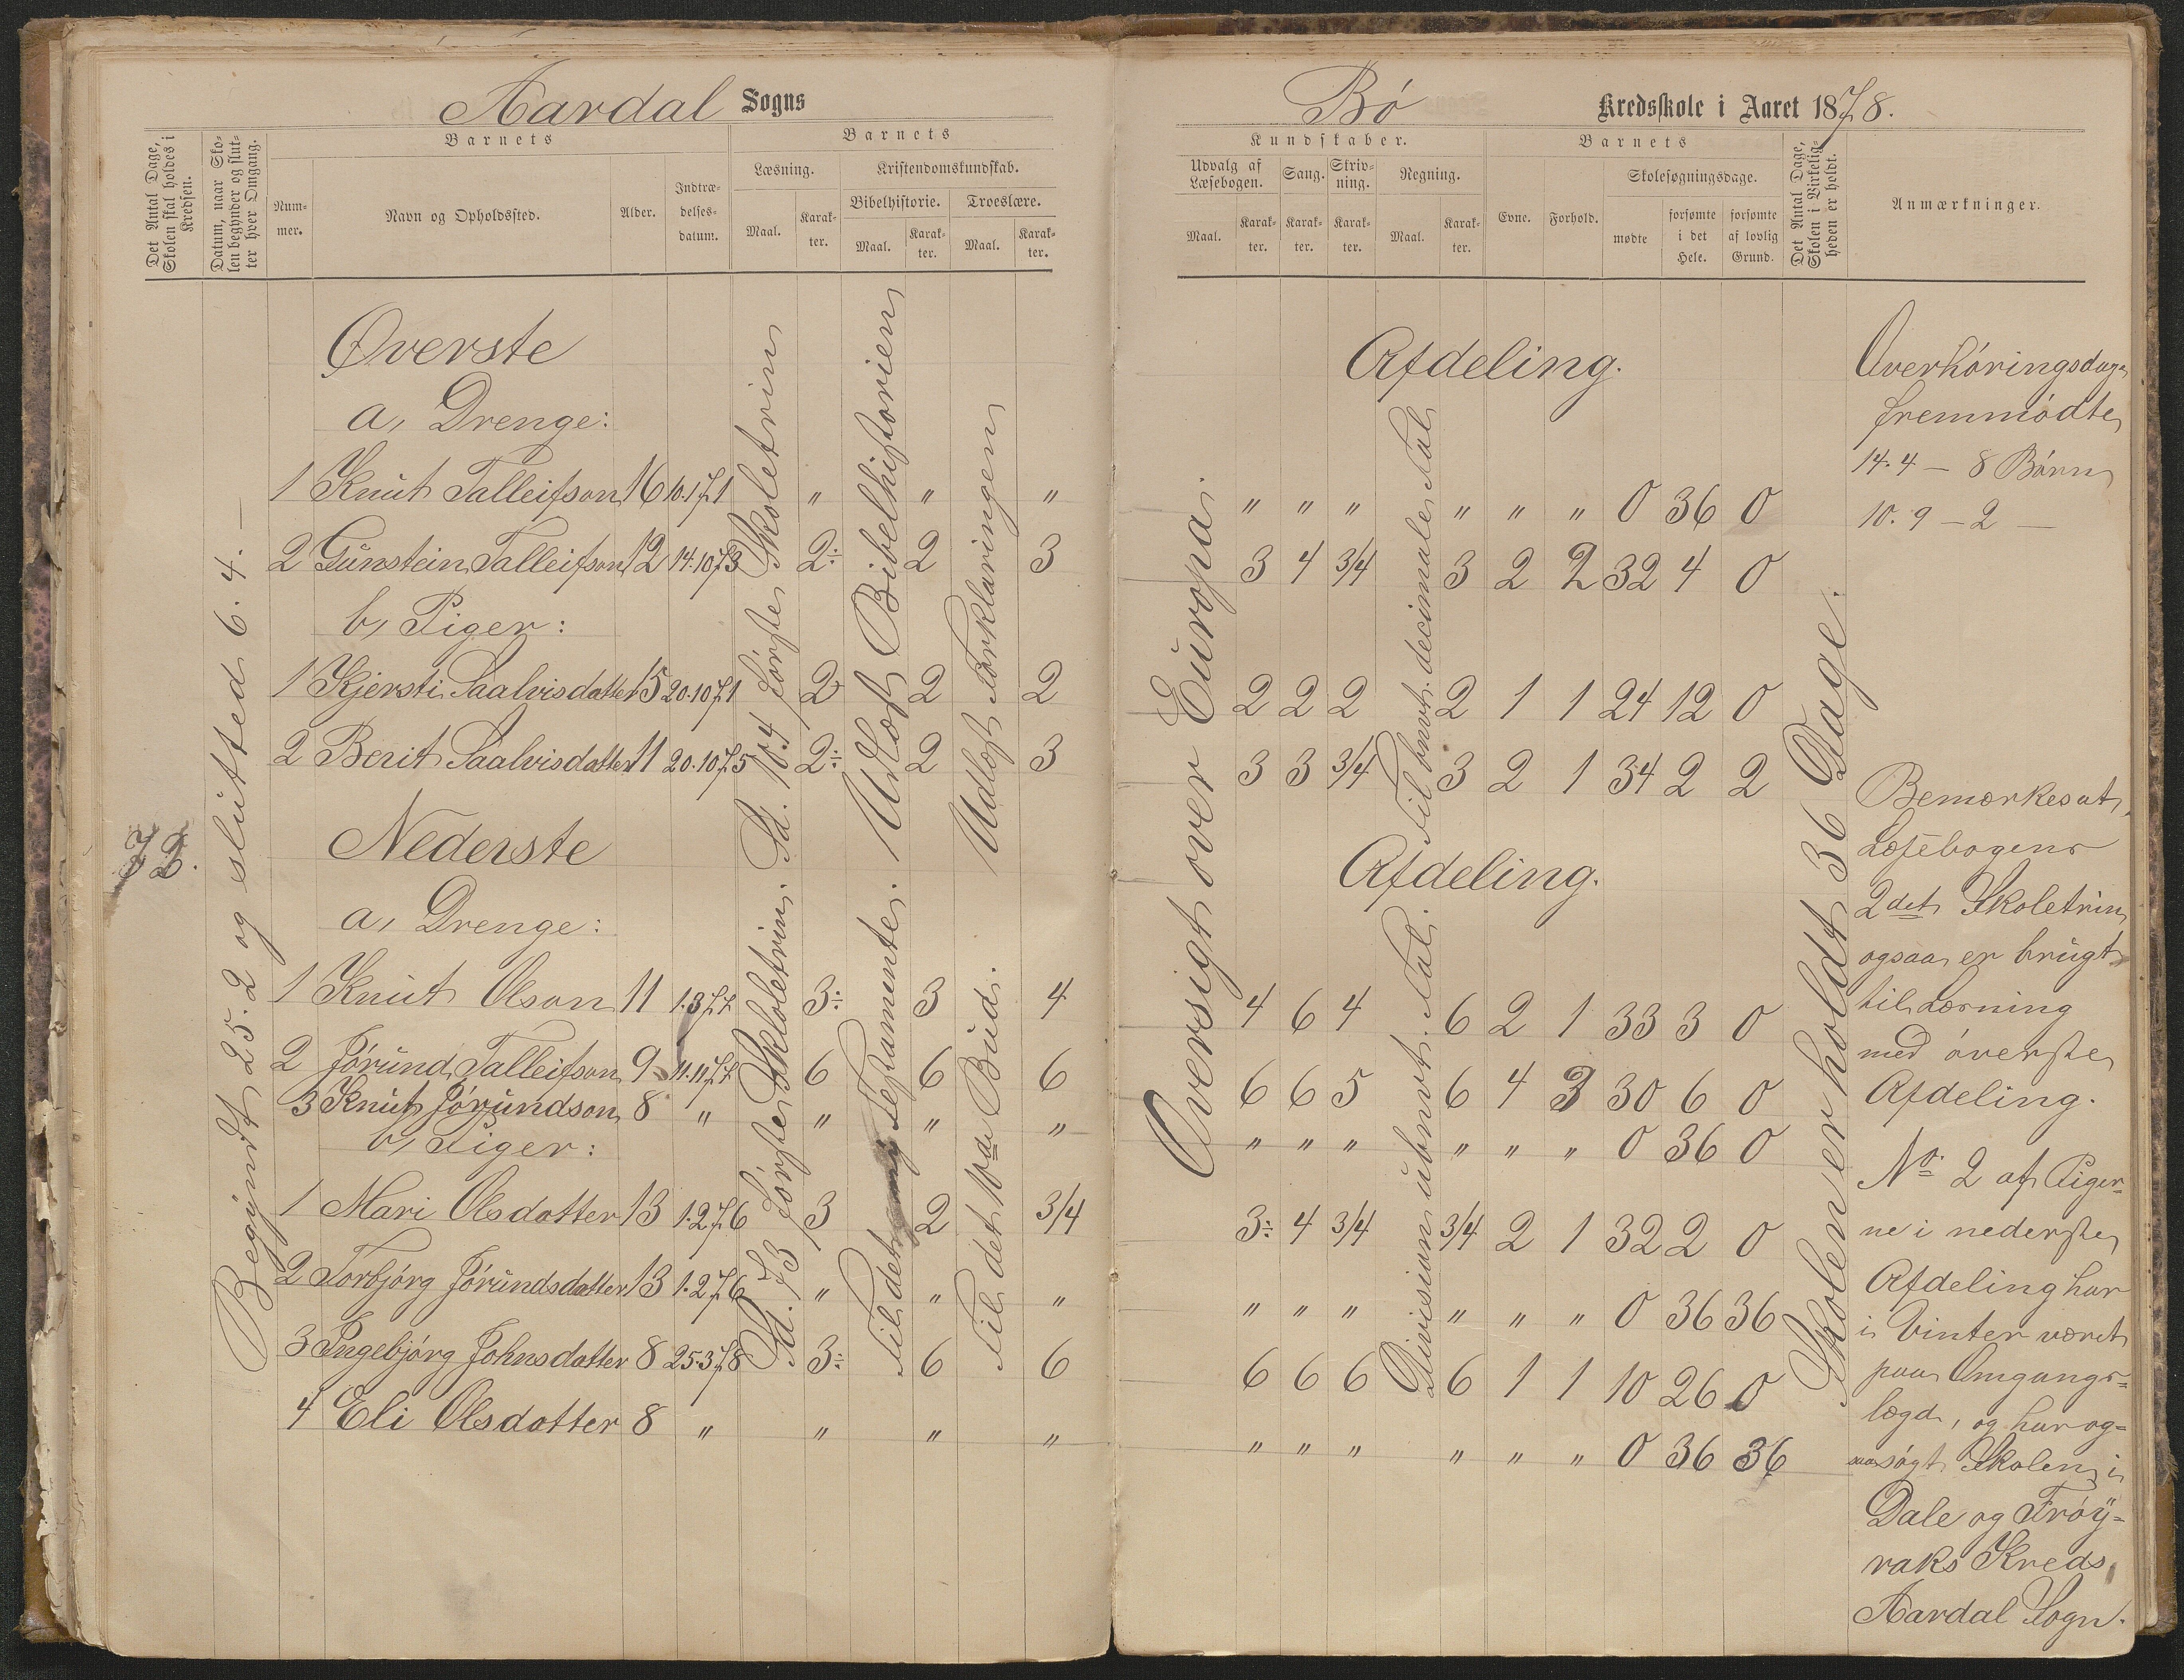 Aardal Sogns
Det Antal Dage, Skolen skal holdes i Kredsen.
Datum, naar Skolen begynder og slutter hver Omgang.
Barnets
Nummer.
Navn og Opholdssted.
Alder.
Indtrædelsesdatum.
Barnets
Læsning.
Maal.
Karakter.
Kristendomskundskab.
Bibelhistorie.
Maal.
Karakter.
Troeslære.
Maal.
Karakter.
72.
Begyndt 25.2 og slutted 6.4. —
Øverste
a, Drenge:
1 Knut Talleifson 16 10.1 71 " " "
2 Gunstein Talleifson 12 14.10 73 2÷ 2 3
b, Piger:
1 Kjersti Saalvisdatter 15 20.10 71 2 2 2
2 Berit Saalvisdatter 11 20.10 75 2÷ 2 3
Sd. 104 første Skoletrin
Udlæst Bibelhistorien
Udlæst Forklaringen
Nederste
a, Drenge:
1 Knut Olson 11 1.3 77 3÷ 3 4
2 Jørund Talleifson 9 11.11 77 6 6 6
3 Knut Jørundson 8 " " " "
b, Piger:
1 Mari Olsdatter 13 1.2 76 3 2 3/4
2 Torbjørg Jørundsdatter 13 1.2 76 " " "
3 Ingebjørg Johnsdatter 8 25.3 78 3÷ 6 6
4 Eli Olsdatter 8 " " " "
Sd. 73 første Skloletrin.
Til det ny Testamente.
Til det 10de Bud.
Bø Kredsskole i Aaret 1878.
Kundskaber.
Udvalg af Læsebogen.
Maal.
Karakter.
Sang.
Karakter.
Skrivning.
Karakter.
Regning.
Maal.
Karakter.
Barnets
Evne.
Forhold.
Skolesøgningsdage.
mødte
forsømte i det Hele.
forsømte af lovlig Grund.
Det Antal Dage, Skolen i Virkeligheden er holdt.
Anmærkninger.
Oversigt over Europa.
Afdeling.
" " " " " " 0 36 0
3 4 3/4 3 2 2 32 4 0
2 2 2 2 1 1 24 12 0
3 3 3/4 3 2 1 34 2 2
Til bnvt. decimale Tal
Afdeling.
4 6 4 6 2 1 33 3 0
6 6 5 6 4 3 30 6 0
" " " " " " 0 36 0
3÷ 4 3/4 3/4 2 1 32 2 0
" " " " " " 0 36 36
6 6 6 6 1 1 10 26 0
" " " " " " 0 36 36
Division ubnvt. Tal.
Skolen er holdt 36 Dage.
Overhøringsdage
fremmødte
14.4 — 8 Børn
10.9 — 2 —
Bemærkes at
Læsebogens
2det Skoletrin
ogsaa er brugt
til Læsning
med øverste
Afdeling.
No 2 af Piger-
ne i nederste
Afdeling har
i Vinter været
paa Omgangs-
lægd, og har og-
saa søgt Skolen i
Dale og Frøy-
raks Kreds,
Aardal Sogn.